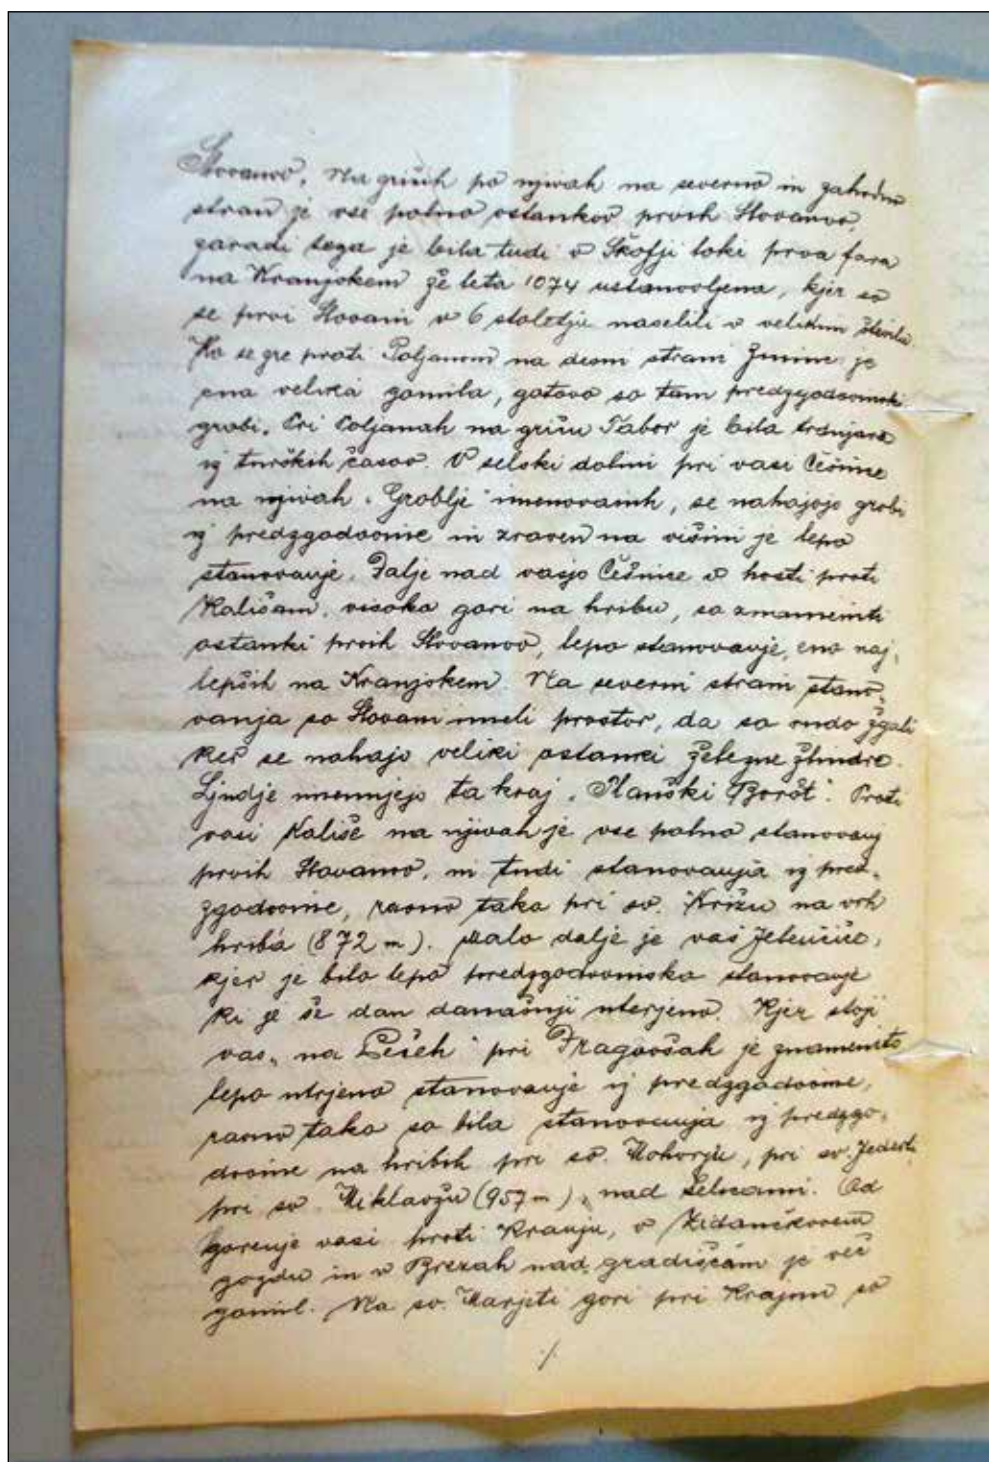 Slovanov. Na gričih po njivah na severno in zahodno
stran je vse polno ostankov prvih Slovanov,
zaradi tega je bila tudi v Škofji loki prva fara
na Kranjskem že leta 1074 ustanovljena, kjer so
se prvi Slovani v 6 stoletju naselili v velikim številu
Ko se gre proti Poljanom na desni strani Zminc je
ena velika gomila, gotovo so tam predzgodovinski
grobi. Pri Poljanah na griču Tabor je bila trdnjava
iz turških časov. V selski dolini pri vasi Češnice
na njivah „Groblje" imenovanih, se nahajojo grobi
iz predzgodovine in zraven na višini je lepo
stanovanje. Dalje nad vasjo Češnice v hosti proti
Kališam, visoko gori na hribu, so znameniti
ostanki prvih Slovanov, lepo stanovanje, eno naj,
lepših na Kranjskem. Na severni strani stano„
vanja so Slovani imeli prostor, da so rudo žgali
ker se nahajo veliki ostanki železne žlindre.
Ljudje imenujejo ta kraj „Štanški Boršt". Proti
vasi Kališe na njivah je vse polno stanovanj
prvih Slovanov, in tudi stanovanja iz pred„
zgodovine, ravno tako pri sv. Križu na vrh
hriba (872 m). Malo dalje je vas
kjer je bilo lepo predzgodovinsko stanovanje
ki je še dan današnji uterjeno. Kjer stoji
vas „na Lešeh" pri je znamenito
lepo utrjeno stanovanje iz predzgodovine,
ravno tako so bila stanovanja iz predzgo„
dovine na hribih pri sv. Mohorju, pri sv. Jederti
pri sv. Miklavžu (957 m) nad Selncami. Od
gorenje vasi proti Kranju, v Žídanškovem
gozdu in v Brezah nad gradiščam je več
gomil. Na sv. Marjeti gori pri Kranju so
./.